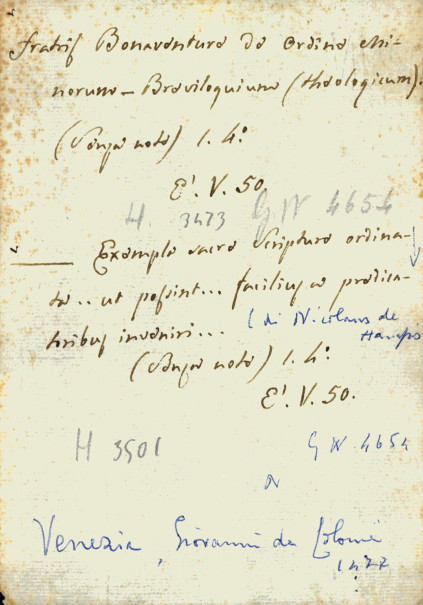 fratris Bonaventure de Ordine Mi-
norum – Breviloquium (theologicum).
(Senza note) 1. 4º.
E'. V. 50.
H. 3473 GW 4654
Exempla sacre Scripture ordina-
ta .. ut possint ... facilius a predica-
toribus inveniri ...
( di Nicolaus de
Hanaps
(Senza note) 1. 4º.
E'. V. 50.
H 3501 GW 4654
N
Venezia, Giovanni da Colonia
1477